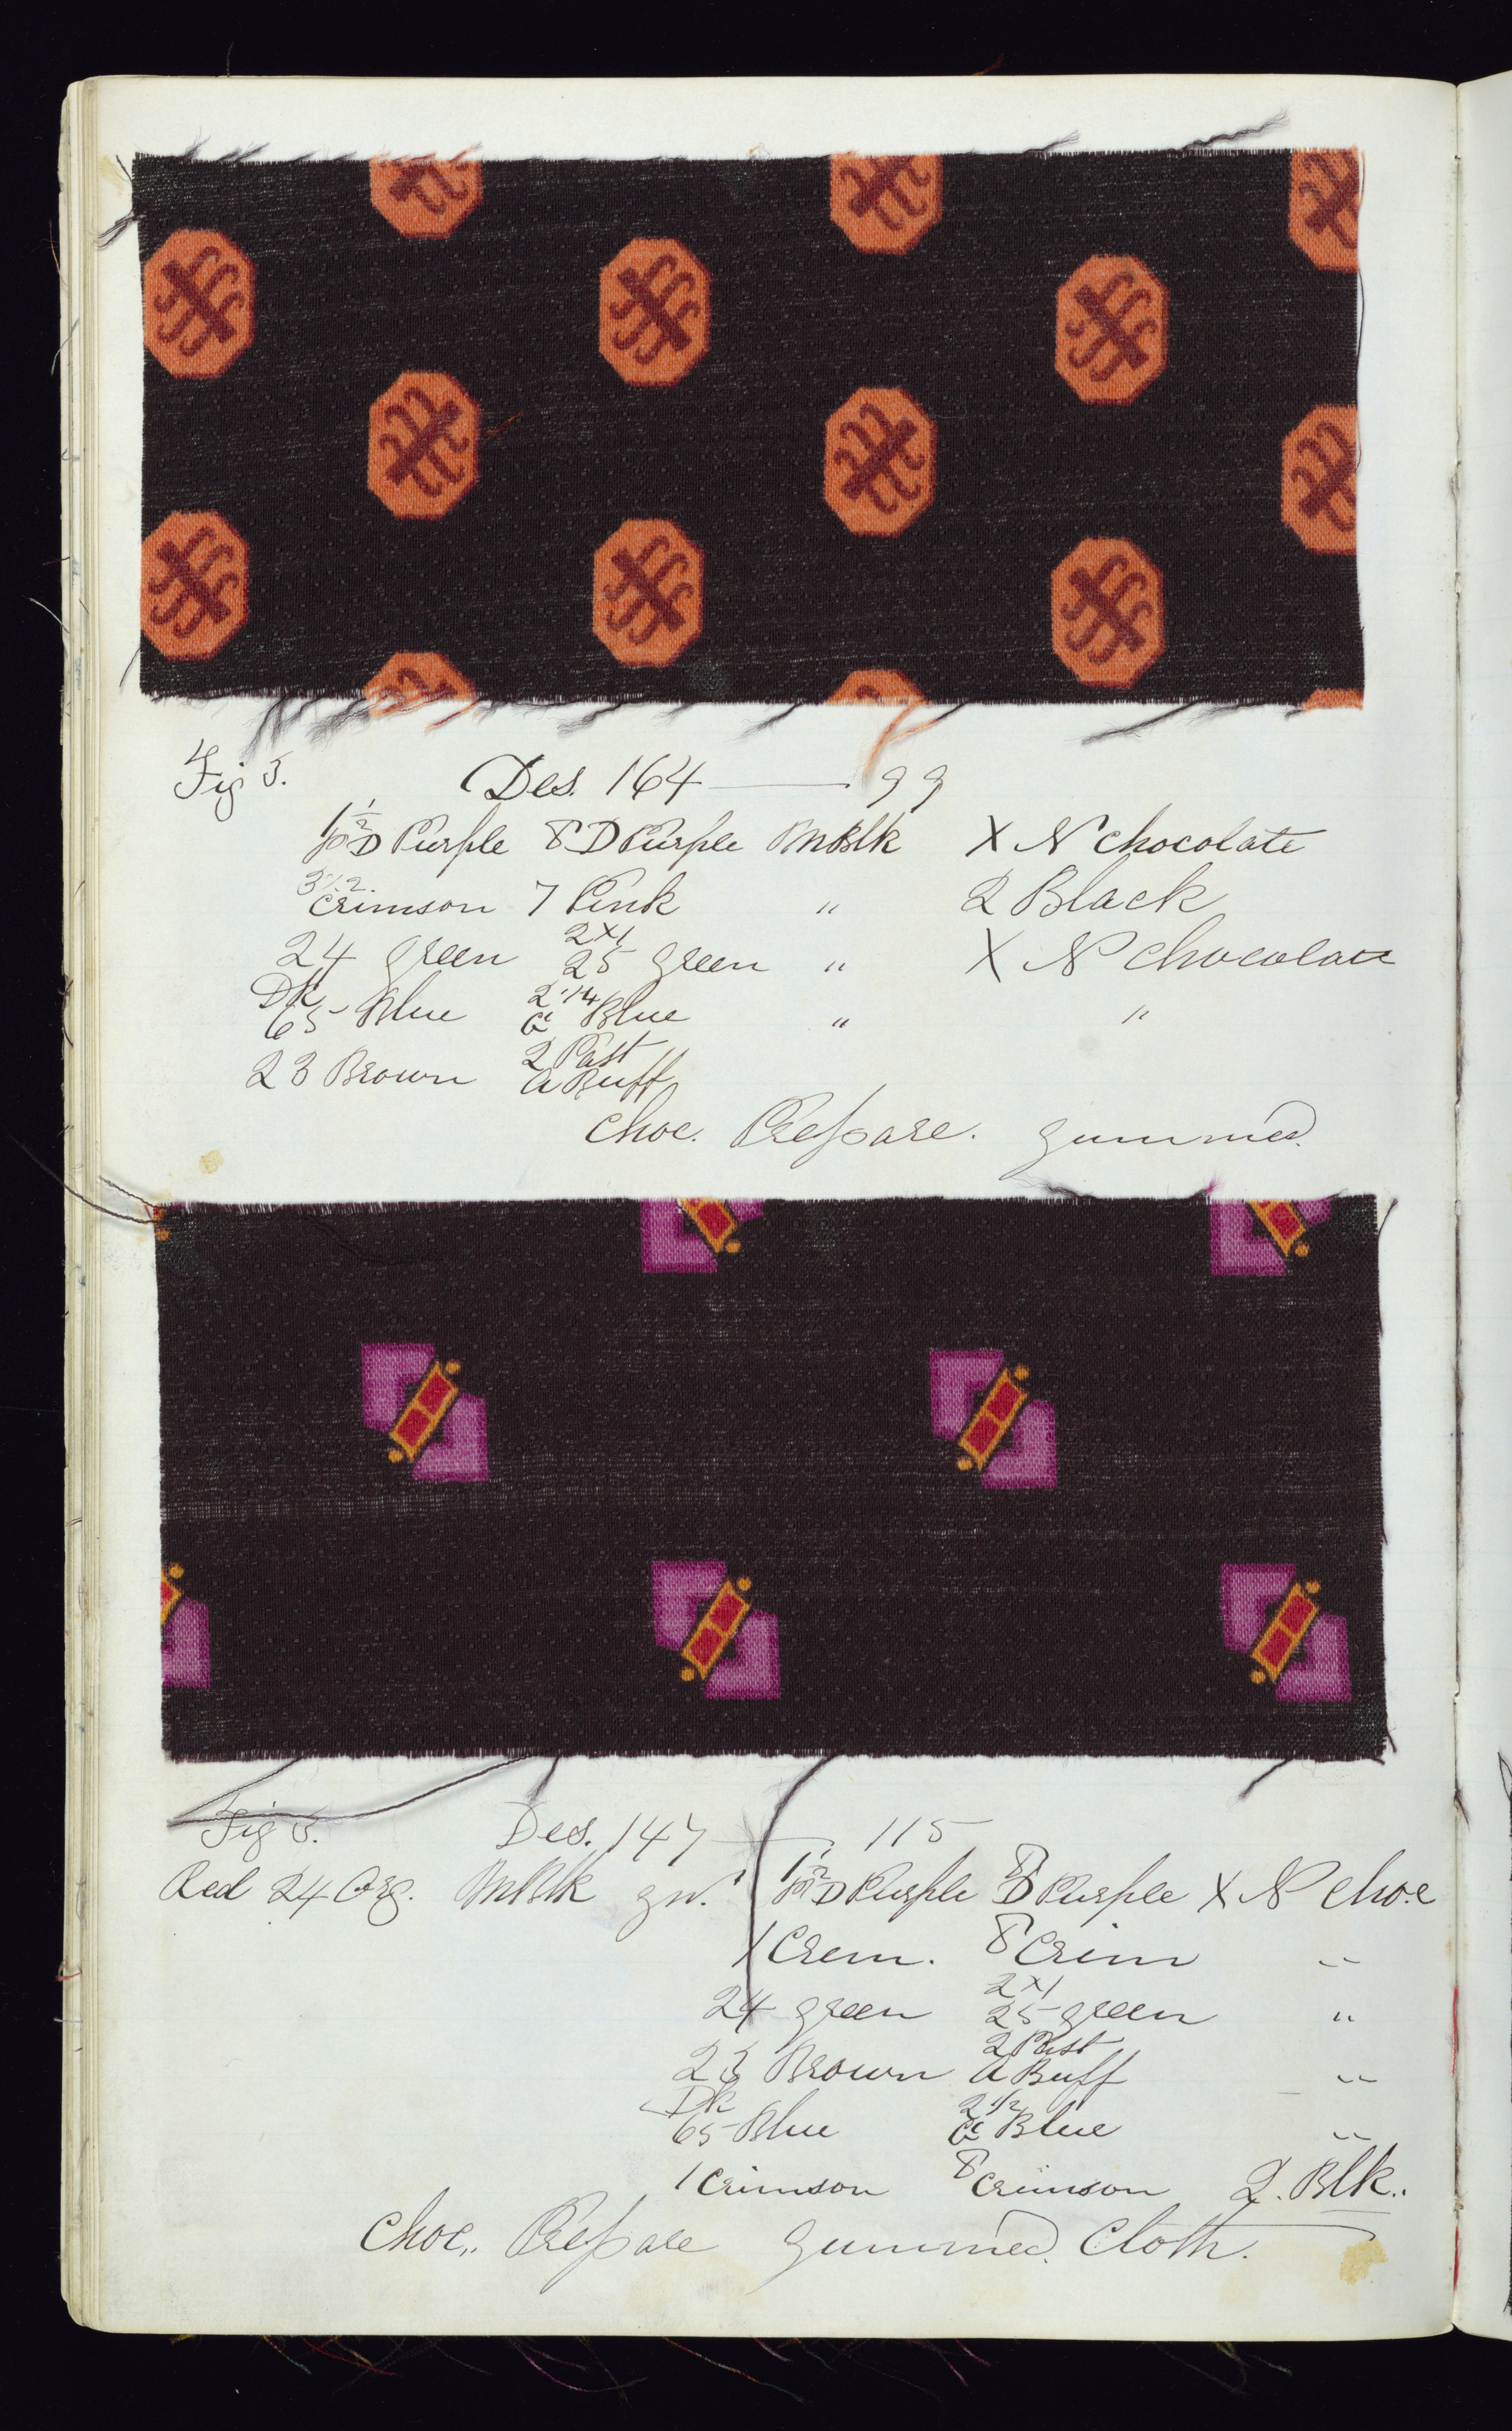 Fig 5. Des. 164 — 99
1½ D Purple 8 D Purple M Blk X N chocolate
Crimson 7 Pink " 2 Black
24 green 2x1 25 green " X N chocolate
Dk 65 Blue 2·14 G Blue " "
23 Brown 2 Past A Buff
Choc. Prepare. gummed.
Fig 5. Des. 147 — 115
Red 24 Org. M Blk gr. 1½ D Purple 8 D Purple X N Choc
1 Crem. 8 Crim "
24 green 2x1 25 green "
23 Brown 2 Past A Buff "
Dk 65 Blue 2 1/2 G Blue "
1 Crimson 8 Crimson 2. Blk..
Choc.. Prepare gummed. Cloth.